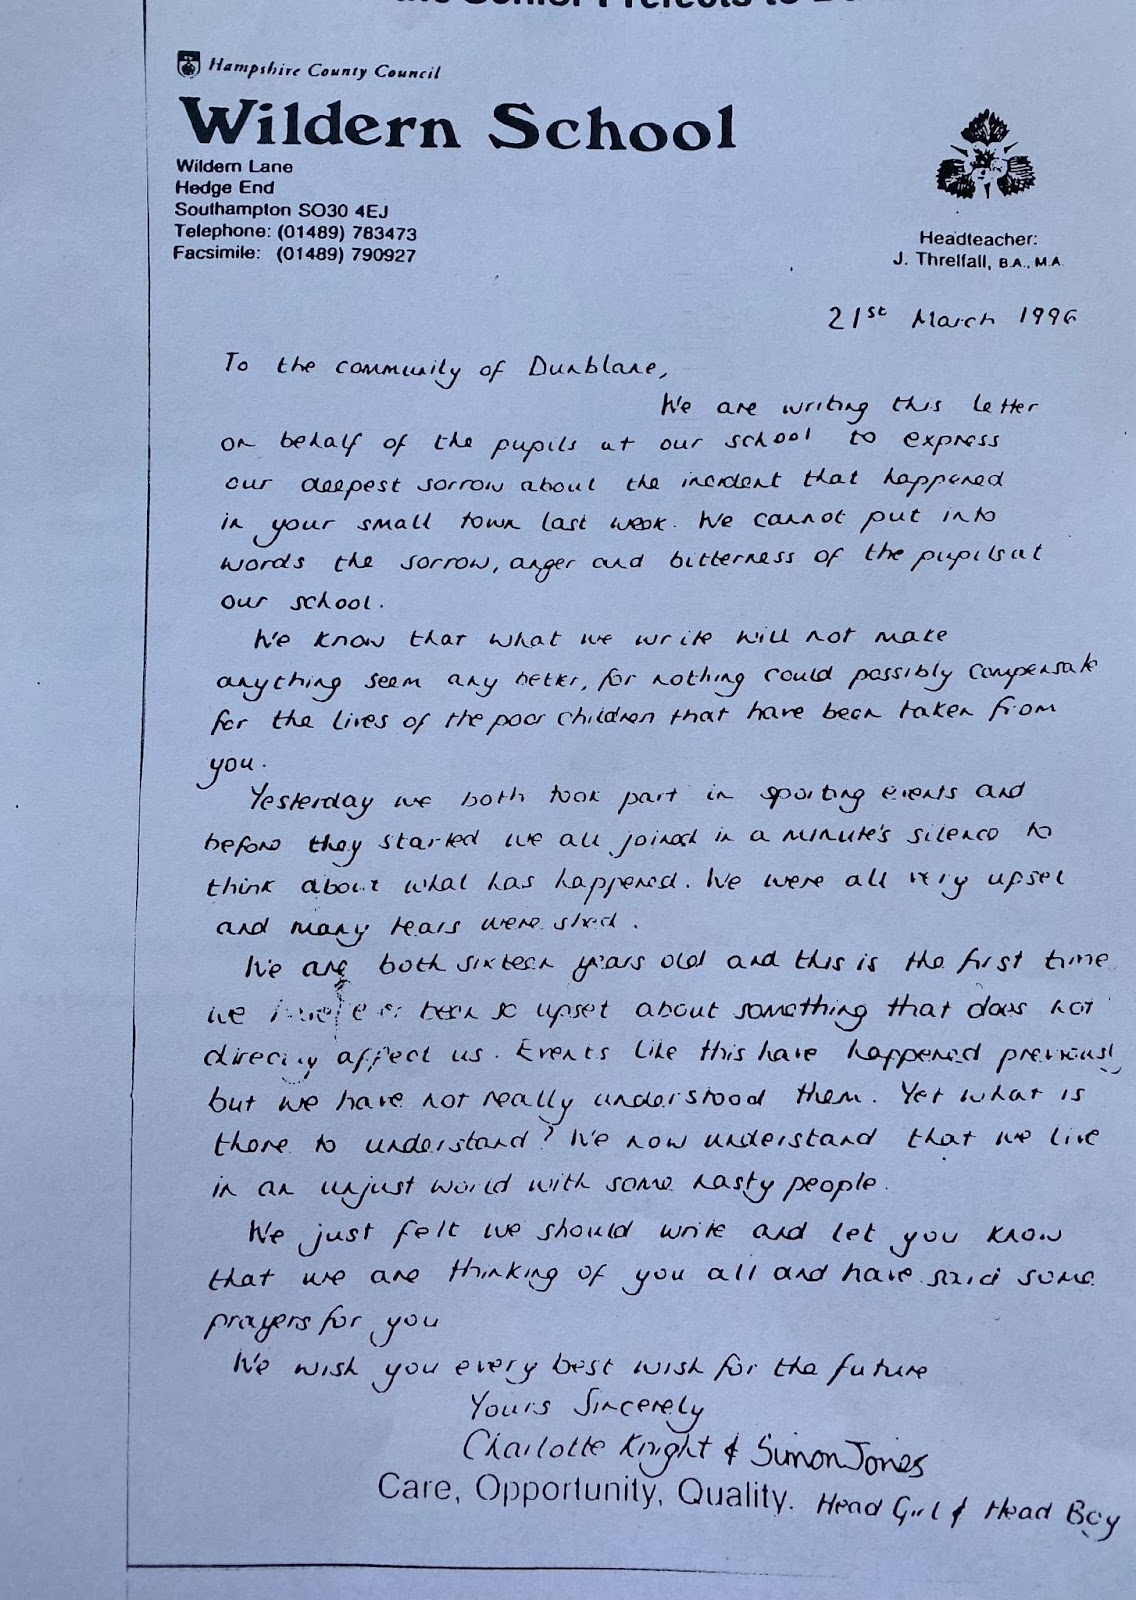 the Senior Prefects to
Hampshire County Council
Wildern School
Wildern Lane
Hedge End
Southampton SO30 4EJ
Telephone: (01489) 783473
Facsimile: (01489) 790927
Headteacher:
J. Threlfall, B.A., M.A.
21st March 1996
To the community of Dunblane,
We are writing this letter
on behalf of the pupils at our school to express
our deepest sorrow about the incident that happened
in your small town last week. We cannot put into
words the sorrow, anger and bitterness of the pupils at
our school.
We know that what we write will not make
anything seem any better, for nothing could possibly compensate
for the lives of the poor children that have been taken from
you.
Yesterday we both took part in sporting events and
before they started we all joined in a minute's silence to
think about what has happened. We were all very upset
and many tears were shed.
We are both sixteen years old and this is the first time
we have ever been so upset about something that does not
directly affect us. Events like this have happened previously
but we have not really understood them. Yet what is
there to understand? We now understand that we live
in an unjust world with some nasty people.
We just felt we should write and let you know
that we are thinking of you all and have said some
prayers for you
We wish you every best wish for the future
Yours Sincerely
Charlotte Knight & Simon Jones
Care, Opportunity, Quality. Head Girl & Head Boy